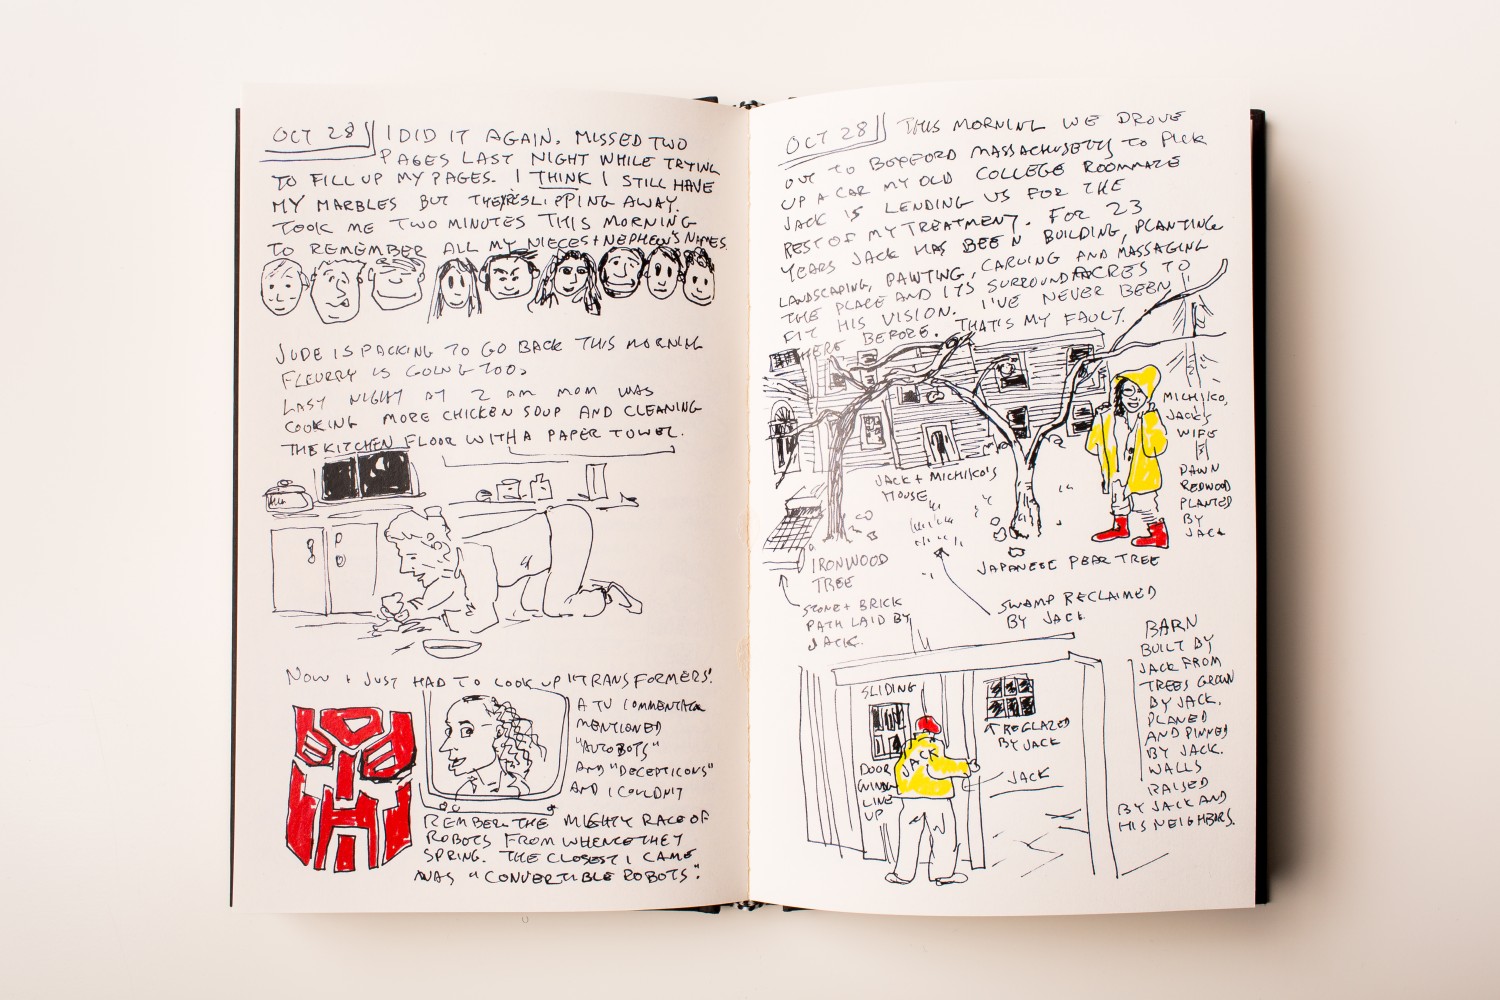 OCT 28
I DID IT AGAIN. MISSED TWO
PAGES LAST NIGHT WHILE TRYING
TO FILL UP MY PAGES. I THINK I STILL HAVE
MY MARBLES BUT THEY'RE SLIPPING AWAY.
TOOK ME TWO MINUTES THIS MORNING
TO REMEMBER ALL MY NIECES + NEPHEW'S NAMES.
JUDE IS PACKING TO GO BACK THIS MORNING
FLEURRY IS GOING TOO.
LAST NIGHT AT 2 AM MOM WAS
COOKING MORE CHICKEN SOUP AND CLEANING
THE KITCHEN FLOOR WITH A PAPER TOWEL.
NOW I JUST HAD TO LOOK UP "TRANSFORMERS".
A TV COMMENTATOR
MENTIONED
"AUTOBOTS"
AND "DECEPTICONS"
AND I COULDN'T
REMEMBER THE MIGHTY RACE OF
ROBOTS FROM WHENCE THEY
SPRING. THE CLOSEST I CAME
WAS "CONVERTIBLE ROBOTS".
OCT 28
THIS MORNING WE DROVE
OUT TO BOXFORD MASSACHUSETTS TO PICK
UP A CAR MY OLD COLLEGE ROOMMATE
JACK IS LENDING US FOR THE
REST OF MY TREATMENT. FOR 23
YEARS JACK HAS BEEN BUILDING, PLANTING
LANDSCAPING, PAINTING, CARVING AND MASSAGING
THE PLACE AND ITS SURROUND ACRES TO
FIT HIS VISION. I'VE NEVER BEEN
HERE BEFORE. THAT'S MY FAULT.
MICHIKO,
JACK'S
WIFE
DAWN
REDWOOD
PLANTED
BY
JACK
JACK + MICHIKO'S
HOUSE
IRONWOOD
TREE
JAPANESE PEAR TREE
STONE + BRICK
PATH LAID BY
JACK.
SWAMP RECLAIMED
BY JACK
BARN
BUILT BY
JACK FROM
TREES GROWN
BY JACK.
PLANED
AND PINNED
BY JACK.
WALLS
RAISED
BY JACK AND
HIS NEIGHBORS.
SLIDING
DOOR
WINDOW
LINE
UP
REGLAZED
BY JACK
JACK
JACK